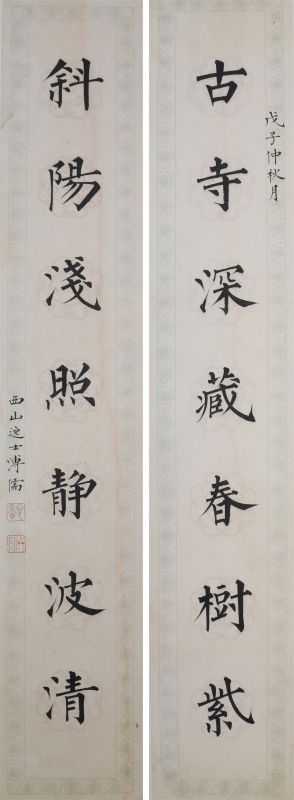 戊子仲秋月
古寺深藏春樹紫
斜陽淺照靜波清
西山逸士溥儒